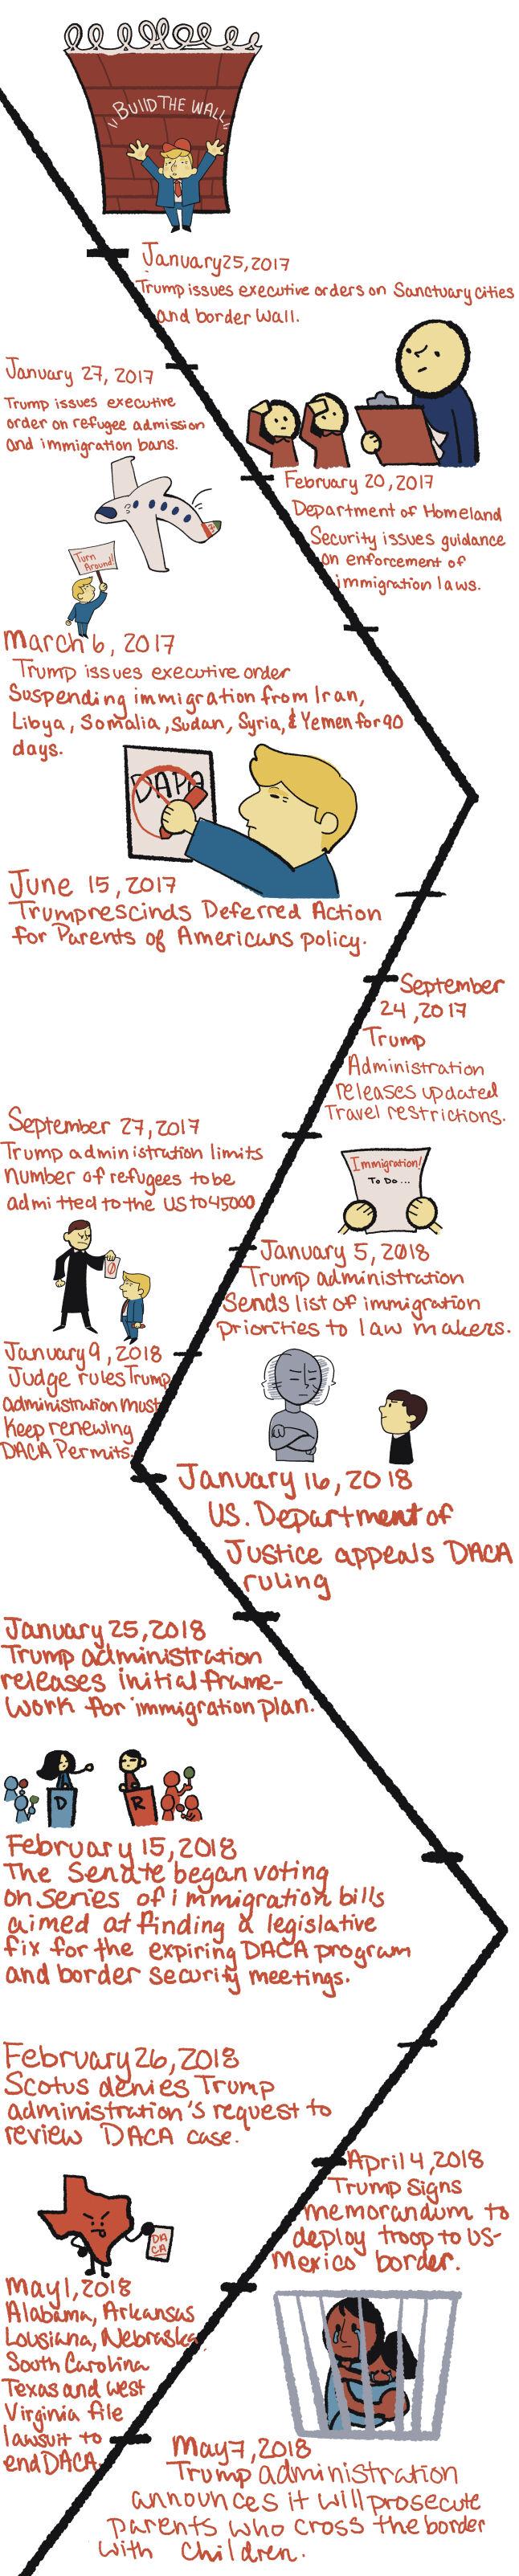 "BUIlD THE WALL"
January 25, 2017
Trump issues executive orders on Sanctuary cities
and border wall.
January 27, 2017
Trump issues executive
order on refugee admission
and immigration bans.
February 20, 2017
Department of Homeland
Security issues guidance
on enforcement of
immigration laws.
Turn
Around!
March 6, 2017
Trump issues executive order
Suspending immigration from Iran,
Libya, Somalia, Sudan, Syria, & Yemen for 90
days.
DAPA
June 15, 2017
Trump rescinds Deferred Action
for Parents of Americans policy.
September
24, 2017
Trump
Administration
releases updated
Travel restrictions.
September 27, 2017
Trump administration limits
number of refugees to be
admitted to the US to 45000
Immigration!
To Do ...
January 5, 2018
Trump administration
Sends list of immigration
priorities to law makers.
January 9, 2018
Judge rules Trump
administration must
keep renewing
DACA Permits.
January 16, 2018
US. Department of
Justice appeals DACA
ruling
January 25, 2018
Trump administration
releases initial frame-
work for immigration plan.
D
R
February 15, 2018
The Senate began voting
on series of immigration bills
aimed at finding a legislative
fix for the expiring DACA program
and border security meetings.
February 26, 2018
Scotus denies Trump
administration's request to
review DACA case.
April 4, 2018
Trump signs
memorandum to
deploy troop to US-
Mexico border.
DA
CA
May 1, 2018
Alabama, Arkansas
Lousiana, Nebraska,
South Carolina
Texas and west
Virginia file
lawsuit to
end DACA.
May 7, 2018
Trump administration
announces it will prosecute
parents who cross the border
with children.